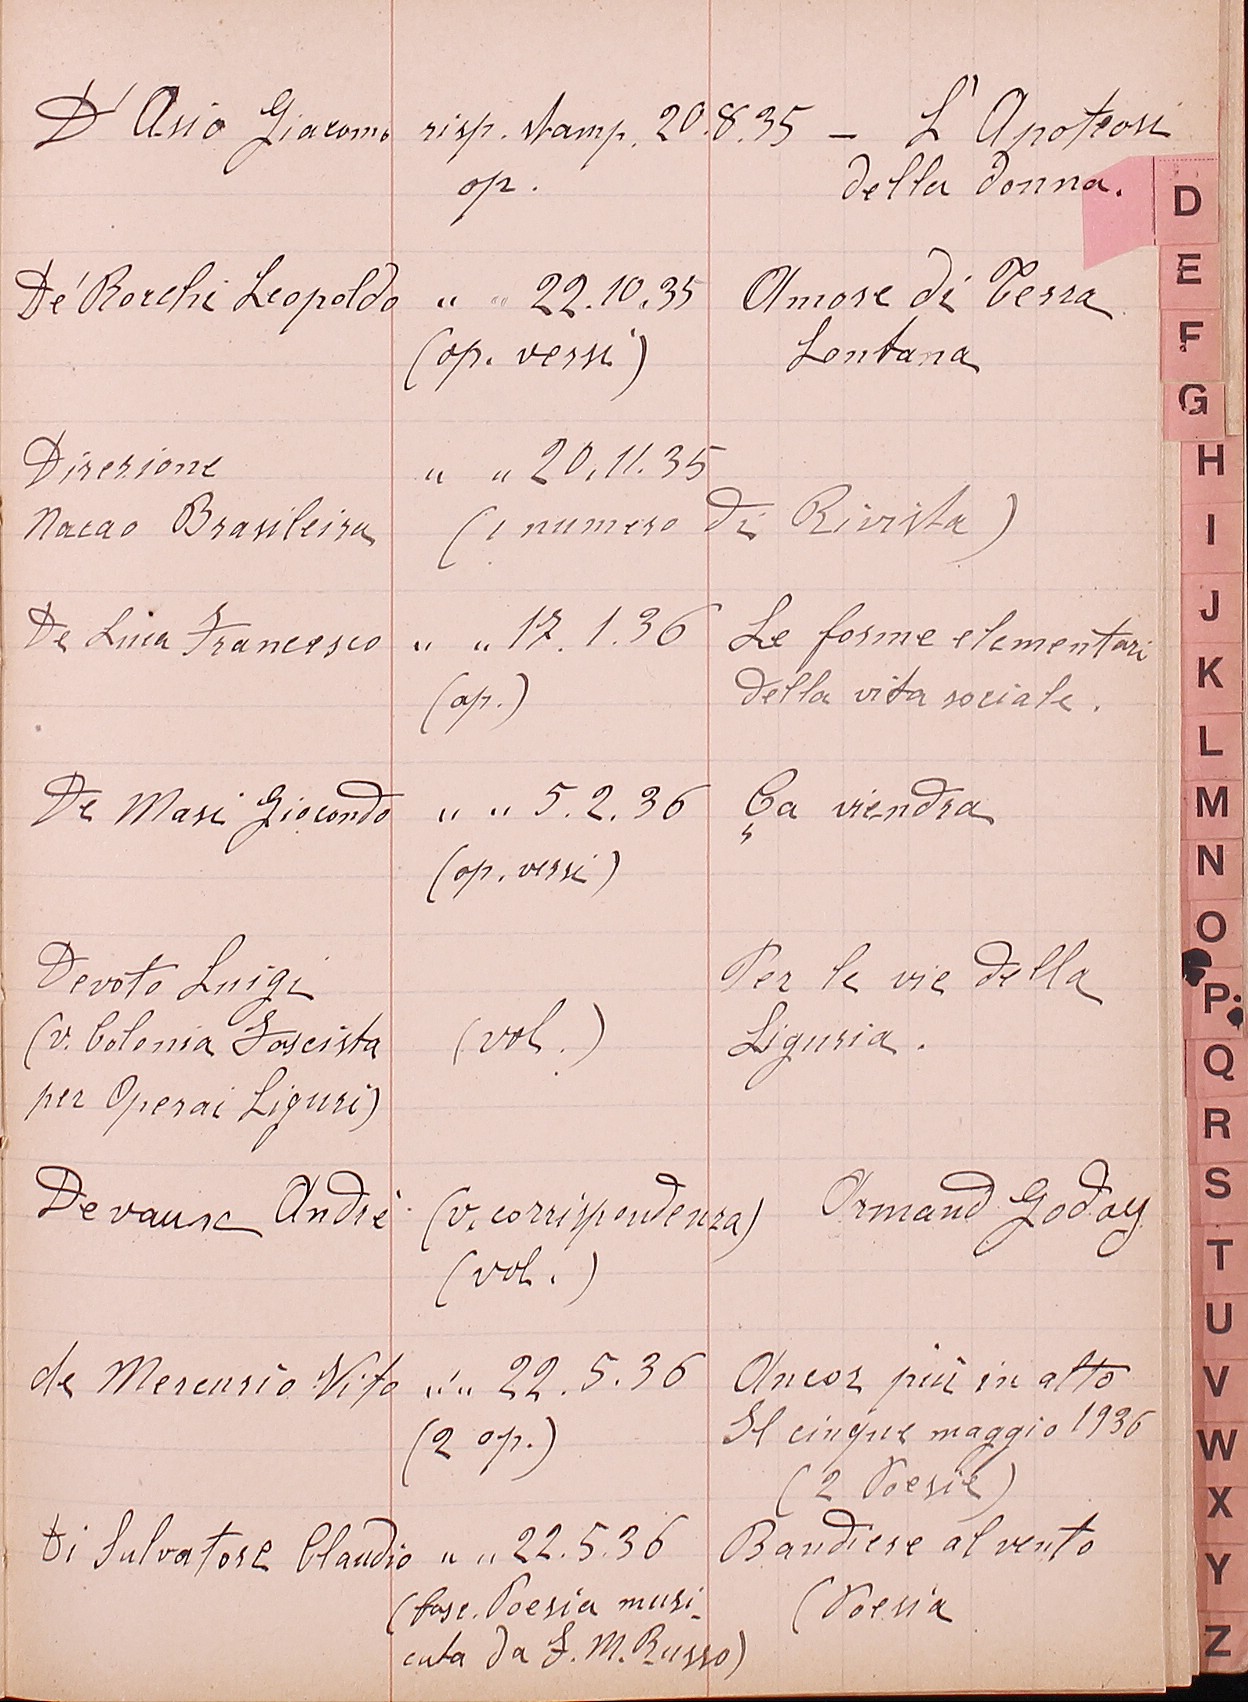 D'Asio Giacomo risp. stamp. 20.8.35 — L'Apoteosi
op. della donna.
De' Rocchi Leopoldo " " 22.10.35 Amore di Terra
(op. versi) Lontana
Direzione " " 20.11.35
Nacao Brasileira (1 numero di Rivista)
De Luca Francesco " " 17.1.36 Le forme elementari
(op.) della vita sociale.
De Masi Giocondo " " 5.2.36 Ça viendra
(op. versi)
Devoto Luigi Per le vie della
(v. Colonia Fascista (vol.) Liguria.
per Operai Liguri)
Devaux André (v. corrispondenza) Armand Godoy
(vol.)
de Mercurio Vito " " 22.5.36 Ancor più in alto
(2 op.) Il cinque maggio 1936
(2 Poesie)
Di Salvatore Claudio " " 22.5.36 Bandiere al vento
(fasc. Poesia musi- (Poesia
cata da F. M. Russo)
D
E
F
G
H
I
J
K
L
M
N
O
P
Q
R
S
T
U
V
W
X
Y
Z